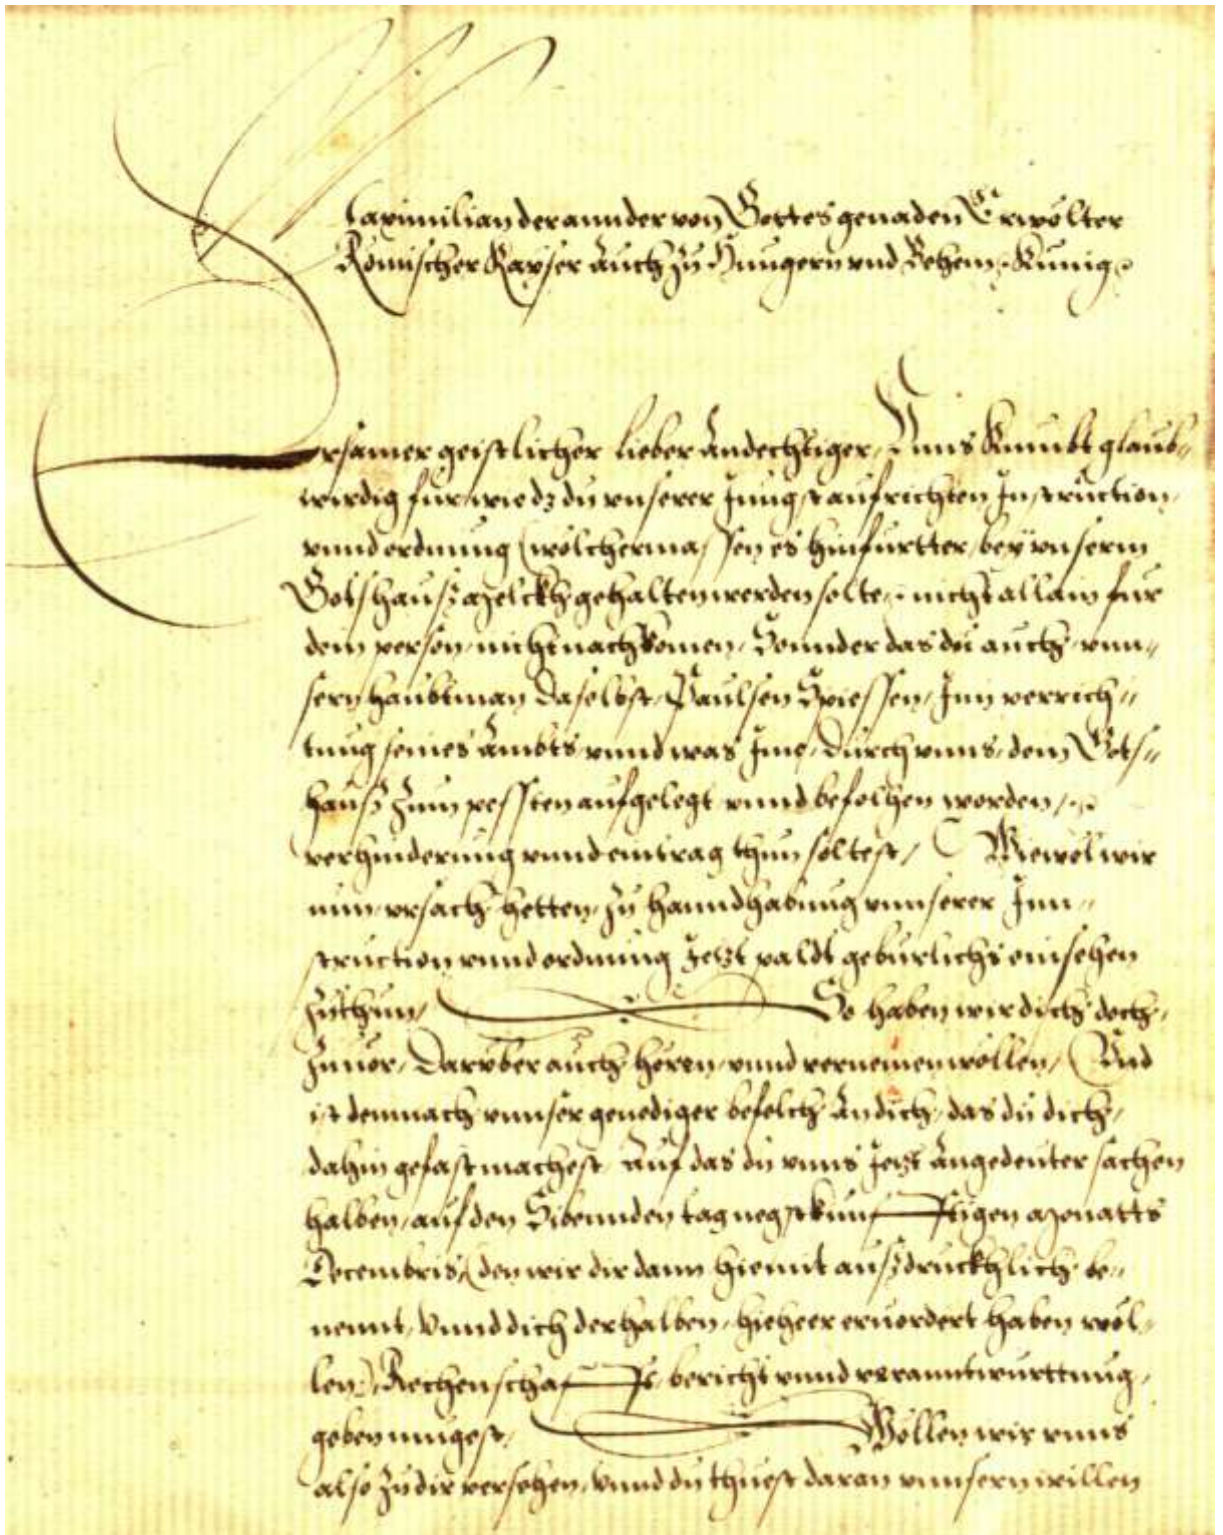 Maximilian der annder von Gottes genaden Erwölter
Römischer Kayser auch zu Hungern vnd Behem Kunig
Ersamer geistlicher lieber andechtiger, Vnns kumbt glaub„
wirdig fur, wie dz du vnserer Jungst aufrichten Instruction,
vnnd ordnung (wölchermassen es hinfurtter, bey vnserm
Gotshauß Melckh gehalten werden solte) nicht allain fur
dein person, nicht nachkomen, Sonnder das du auch, vnn„
sern haubtman daselbst, Paulsen Spiessen, Inn verrich„
tung seines Ambts vnnd was Ime, durch vnns, dem Gots„
hauß zum pessten aufgelegt vnnd befolhen worden,
verhinderung vnnd eintrag thun soltest, Wiewol wir
nun, vrsach hetten, zu hanndhabung vnnserer Inn„
struction vnnd ordnung Jetzt paldt geburlichs einsehen
zuthun, So haben wir dich doch,
zuuor, darüber auch hören, vnnd vernemen wöllen, Und
ist demnach vnnser genediger befelch an dich, das du dich,
dahin gefast machest, auf das du vnns Jetzt angedeuter sachen
halben, auf den Sibennden tag negstkunfftigen Monatts
Decembris, (den wir dir dann hiemit außdruckhlich be„
nennt, vnnd dich derhalben, hieheer eruordert haben wöl„
len) Rechenschafft, bericht vnnd veranntwurttung,
geben mugest, Wöllen wir vnns
also zu dir versehen, vnnd du thuest daran vnnsern willen